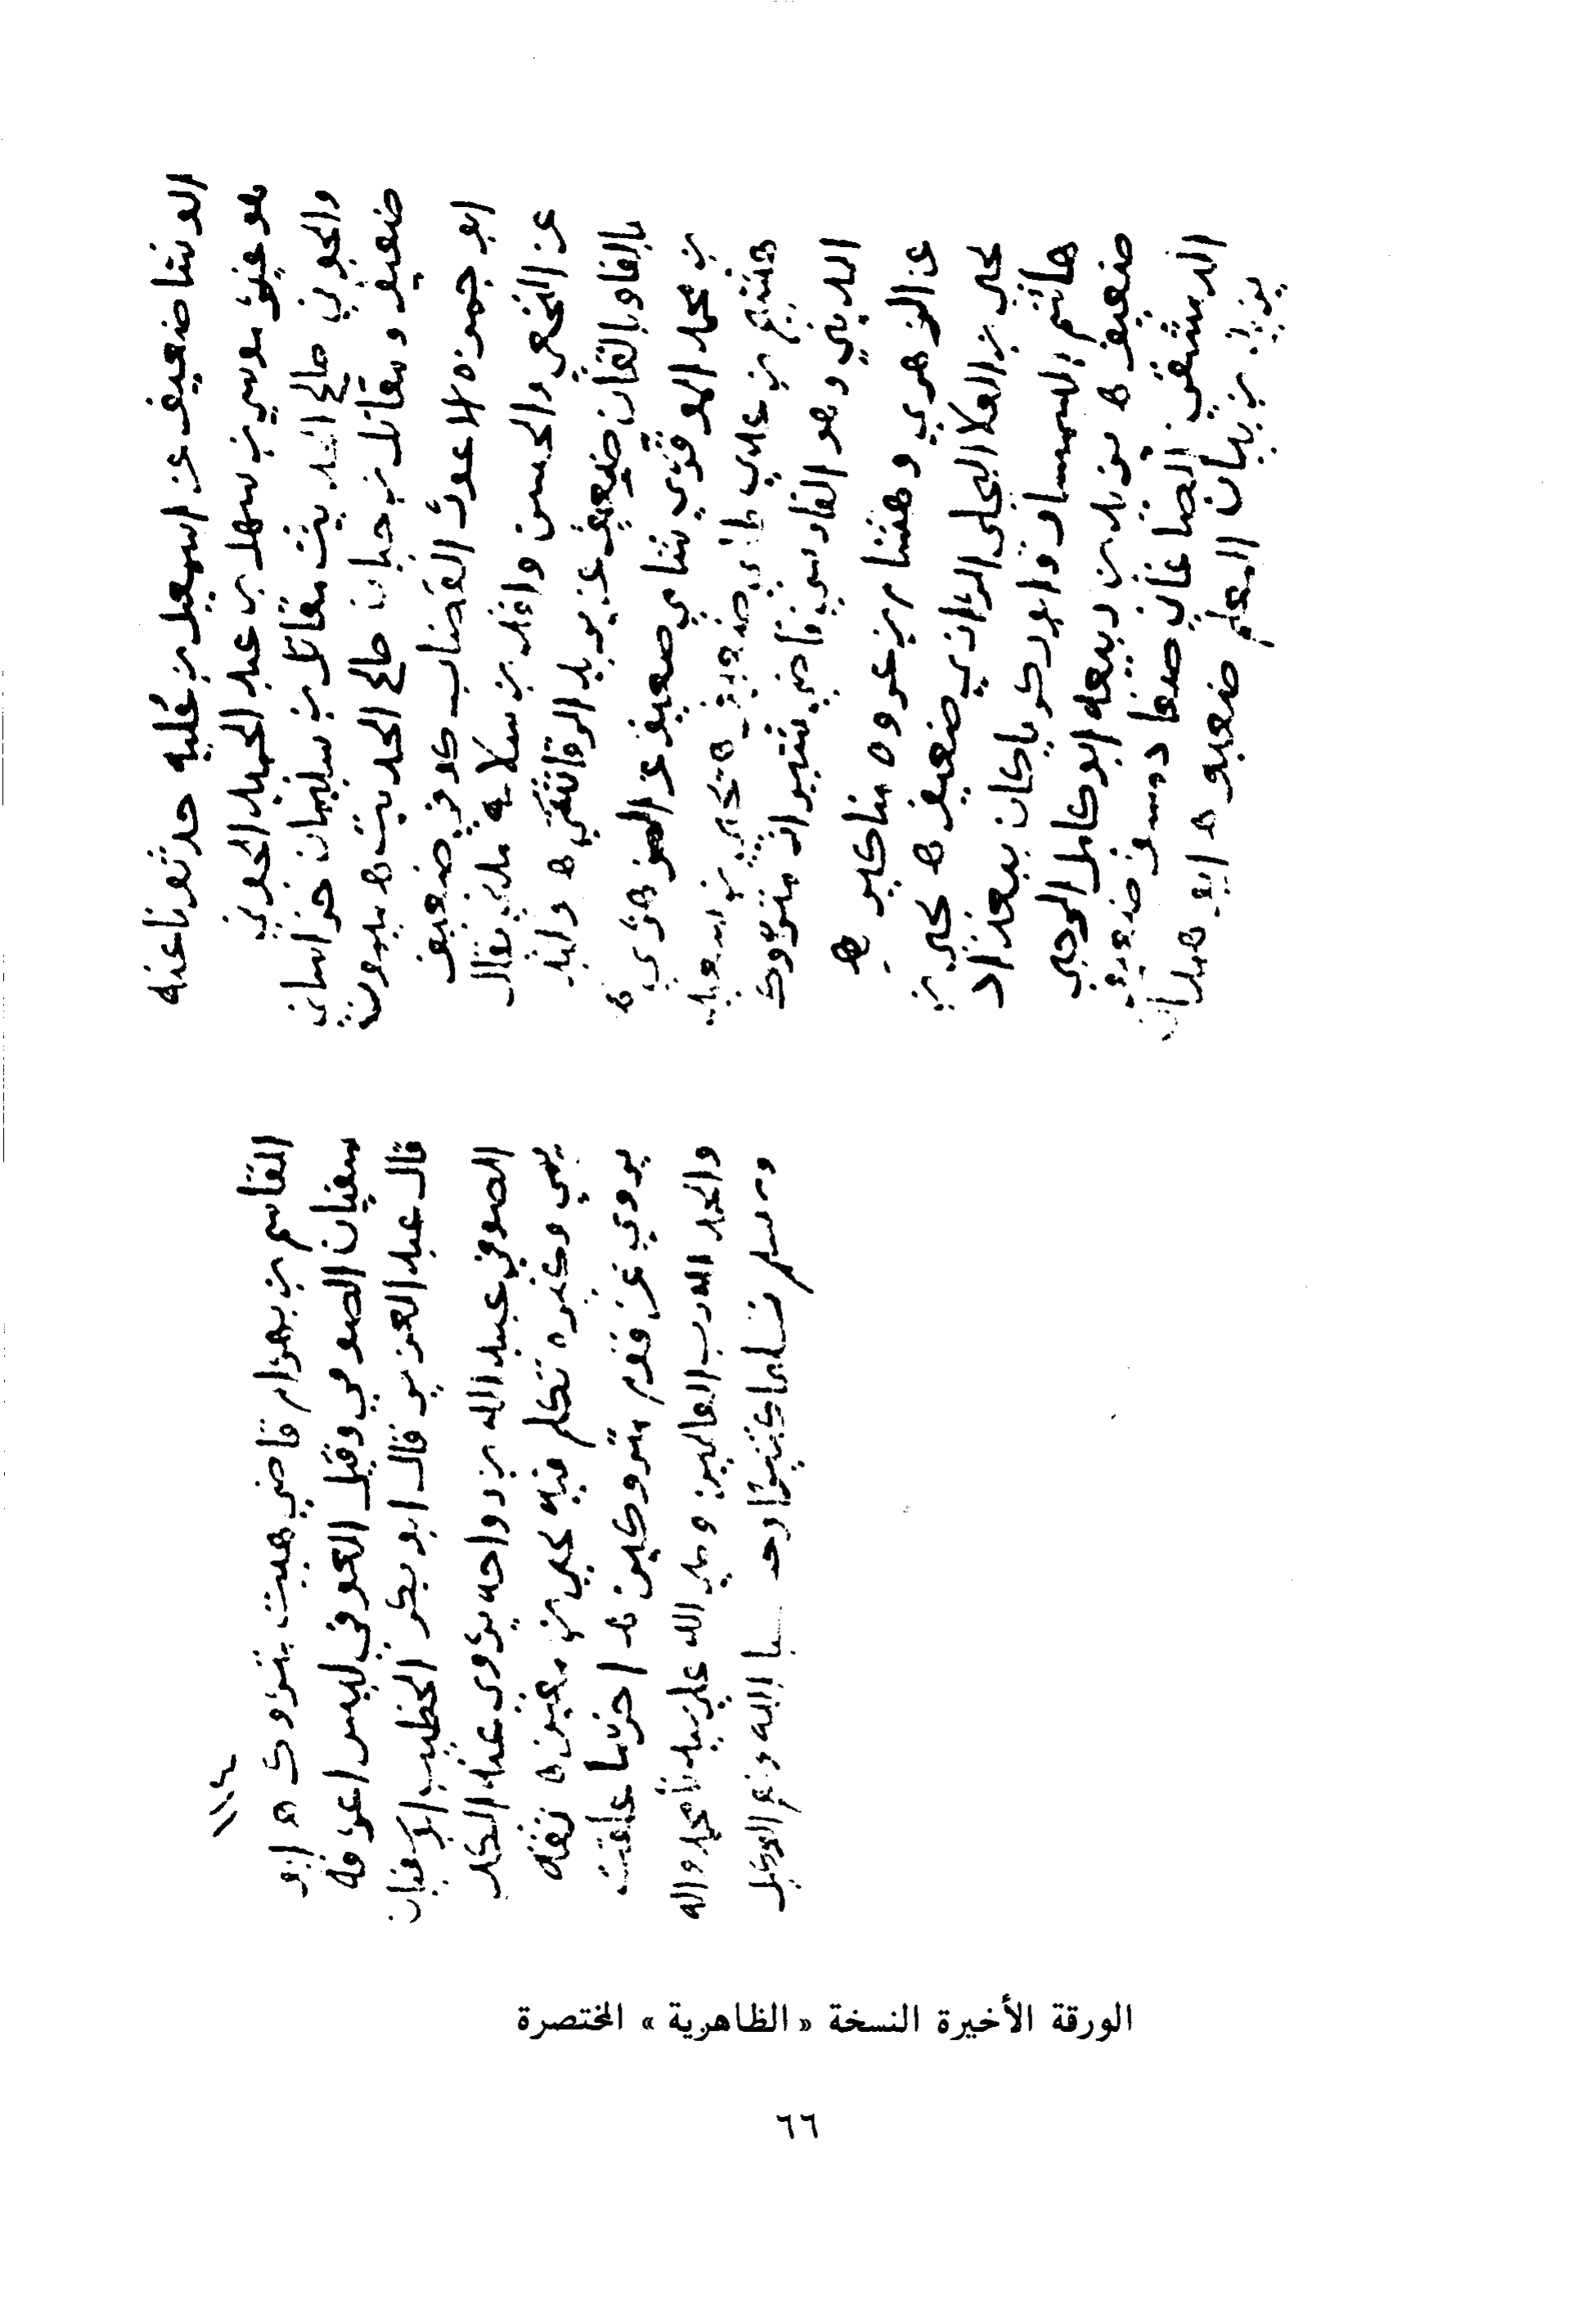 الوشا ضعيف عن اسمعيل بن علية حدثونا عنه
هو عندي موسى بن سهل بن عبد الحميد الجوني
والجوني صالح الحديث مقاتل بن سليمان خراساني
ضعيف ومقاتل بن حيان صالح الحديث ه ميمون
ابو حمزه الاعور القصاب كوفي ضعيف
عن النخعي والحسن وافلد بن سلامه مدني يقال
بالفا وبالقاف ضعيف عن يزيد الرقاشي ه وليد
بن محمد الموقري شامي ضعيف عن الزهري ه
هيثم بن عدي طائي ضعيف ه يحيى بن سعيد
المديني وهو الفارسي قاضي شيراز متروك
عن الزهري وهشام بن عروه مناكير ه
يحيى بن العلا البجلي الرازي ضعيف ه يحيى بن
هاشم السمسار ابو زكريا كان ببغداد
ضعيف ه يزيد بن ربيعه ابو كامل الرحبي
الدمشقي الصاغاني صنعا دمشق ضعيف
يزيد بن بيان المعلم ضعيف ه ابو همدان
١١٤
القاسم بن بهرام قاضي هيت متروك ه ابو
سفيان الصوفي وقيل العوفي ليس اعرفه
قال عبد العزيز قال ابو بكر الخطيب ابو سفيان
الصوفي عبيد الله بن رواحه يروى عنه
يحيى وغيره تكلم فيه يحيى بن معين ه ثقه
يروي عن قوم متروكين ه اخر ما علقت
والحمد لله رب العالمين وصلى الله على سيدنا محمد واله
وسلم تسليما كثيرا الله ونعم الوكيل
الورقة الأخيرة النسخة « الظاهرية » المختصرة
٦٦